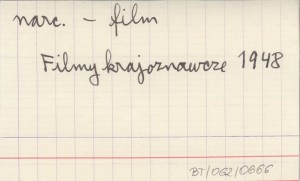 narc. - film
Filmy krajoznawcze 1948
BT/062/0666